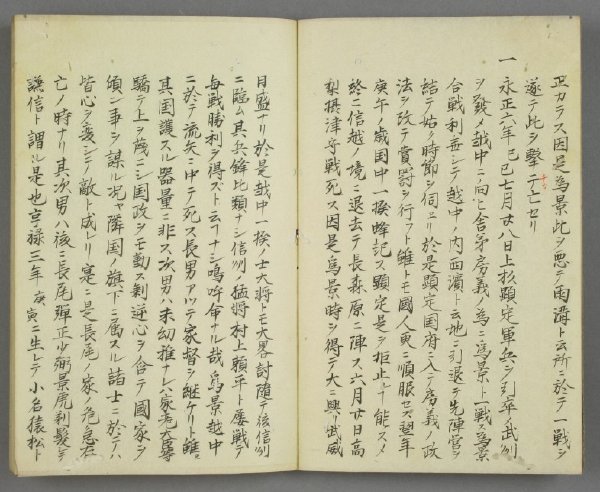 正カラス因是爲景此ヲ悪テ雨溝ト云所ニ於テ一戦シ
遂テ此ヲ撃テ亡セリ
一永正六年己巳七月廿八日上杉顕定軍兵ヲ引率武州
ヲ發メ越中ニ向ヒ舎弟房義ノ為ニ爲景ト一戦ス爲景
合戦利無シテ越中ノ内西濱ト云地ニ引退テ先陣営ヲ
結テ姑ノ時節ヲ伺ヨリ於是顕定国府ニ入テ房義ノ政
法ヲ改テ賞罰ヲ行フト雖トモ國人更ニ順服セス翌年
庚午ノ歳国中一揆蜂起ス顕定是ヲ拒止ルフ能スメ
終ニ信越ノ境ニ退去テ長森原ニ陣ス六月廿日高
梨摂津守戦死ス因是爲景時ヲ得テ大ニ興武威
日盛ナリ於是越中一揆ノ士大将トモ大畧討随テ後信州
ニ臨ム其兵鉾比類ナシ信州ノ猛将村上頼平ト屡戦テ
毎戦勝利ヲ得ズト云フナシ嗚呼命ナル哉爲景越中
ニ於テ流矢ニ中テ死ス長男アツテ家督ヲ継ケリト雖
其国護スル器量ニ非ス次男ハ未幼稚ナレハ家老大等
驕テ上ヲ蔑ニシ国政ヲモ動ス剰逆心ヲ含テ國家ヲ
傾ン事ヲ謀ル况ヤ隣国ノ旗下ニ属スル諸士ニ於テハ
皆心ヲ変シテ敵ト成レリ寔ニ是長尾ノ家ノ危急存
亡ノ時ナリ其次男ハ後ニ長尾弾正少弼景虎剃髪シテ
謙信ト謂ル是也享禄三年庚寅ニ生レテ小名猿松ト